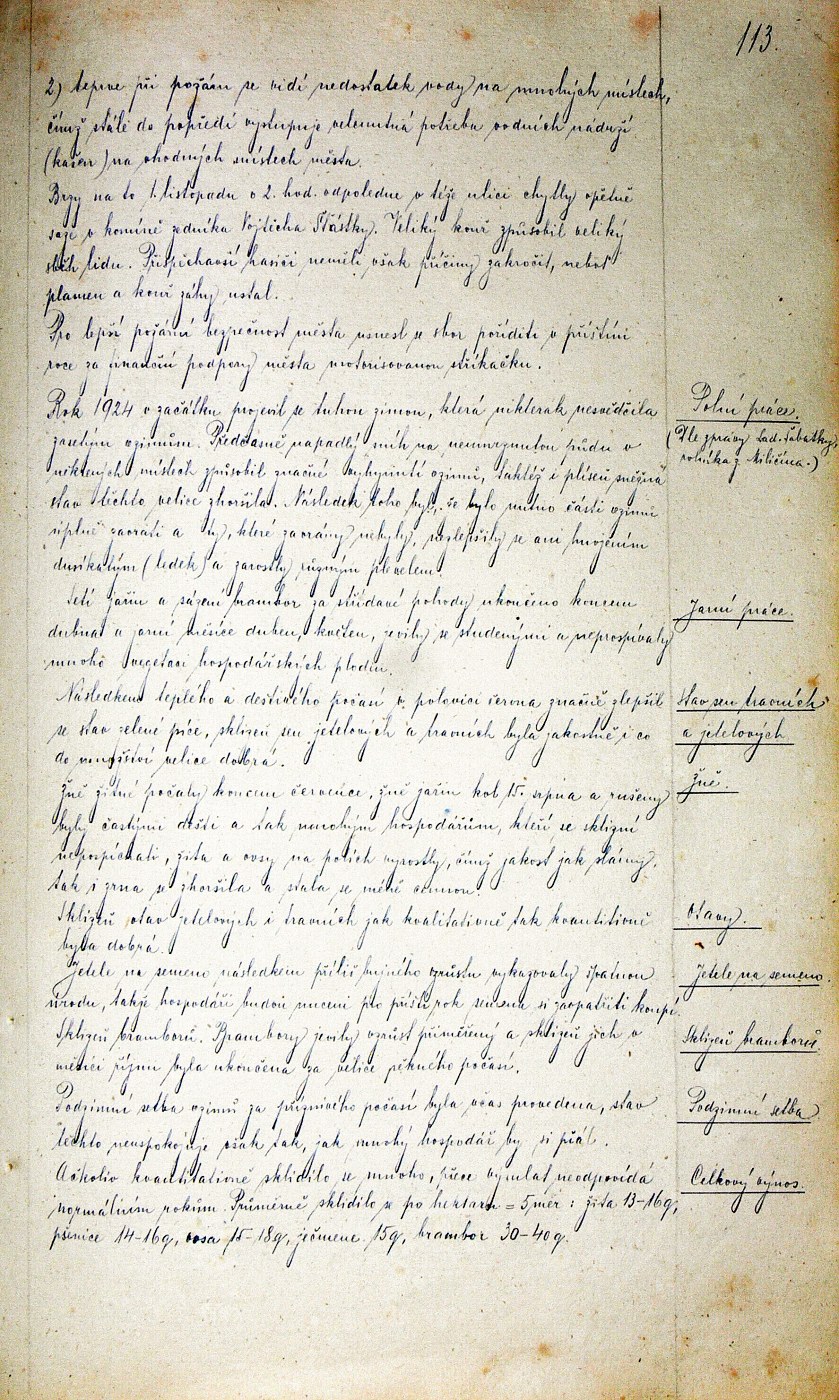 113.
2) teprve při požáru se vidí nedostatek vody na mnohých místech,
čímž stále do popředí vystupuje nutná potřeba vodních nádrží
(kašen) na vhodných místech města.
Brzy na to 1. listopadu o 2. hod. odpoledne v téže ulici chytly opětně
saze v komíně zedníka Vojtěcha Šťástky. Veliký kouř způsobil veliký
sběh lidu. Přispěchavší hasiči neměli však příčiny zakročit, neboť
plamen a kouř záhy ustal.
Pro lepší požární bezpečnost města usnesl se sbor poříditi v příštím
roce za finanční podpory města motorisovanou stříkačku.
Polní práce.
(Dle zprávy Lad. Šabatky,
rolníka z Miličína.)
Rok 1924 v začátku projevil se tuhou zimou, která nikterak nesvědčila
zasetým ozimům. Předčasně napadlý sníh na neumrznutou půdu v
některých místech způsobil značné vyhynutí ozimů, taktéž i plíseň sněžná
stav těchto velice zhoršila. Následek toho byl, že bylo nutno části ozimů
úplně zaorati a ty, které zaorány nebyly, nezlepšily se ani hnojením
dusíkatým (ledek) a zarostly různým plevelem.
Jarní práce.
Setí jařin a sázení brambor za střídavé pohody ukončeno koncem
dubna a jarní měsíce duben, květen, jevily se studenými a neprospívaly
mnoho vegetaci hospodářských plodin.
Stav sen travních
a jetelových
Následkem teplého a deštivého počasí v polovici června značně zlepšil
se stav zelené píce, sklizeň sen jetelových a travních byla jakostně i co
do množství velice dobrá.
Žně.
Žně žitné počaly koncem července, žně jařin kol 15. srpna a rušeny
byly častými dešti a tak mnohým hospodářům, kteří se sklizní
nepospíchali, žita a ovsy na polích vyrostly, čímž jakost jak slámy,
tak i zrna se zhoršila a stala se méně cennou.
Otavy.
Sklizeň otav jetelových i travních jak kvalitativně tak kvantitivně
byla dobrá.
Jetele na semeno.
Jetele na semeno následkem příliš bujného vzrůstu vykazovaly špatnou
úrodu, takže hospodáři budou nuceni pro příští rok semena si zaopatřiti koupí.
Sklizeň bramborů.
Sklizeň bramborů. Brambory jevily vzrůst přiměřený a sklizeň jich v
měsíci říjnu byla ukončena za velice pěkného počasí.
Podzimní setba
Podzimní setba ozimů za příznivého počasí byla včas provedena, stav
těchto neuspokojuje však tak, jak mnohý hospodář by si přál.
Celkový výnos.
Ačkoliv kvantitativně sklidilo se mnoho, přece výmlat neodpovídá
normálním rokům. Průměrně sklidilo se po hektaru = 5 měr : žita 13-16 q,
pšenice 14-16q, ovsa 15-18q, ječmene 15q, brambor 30-40q.